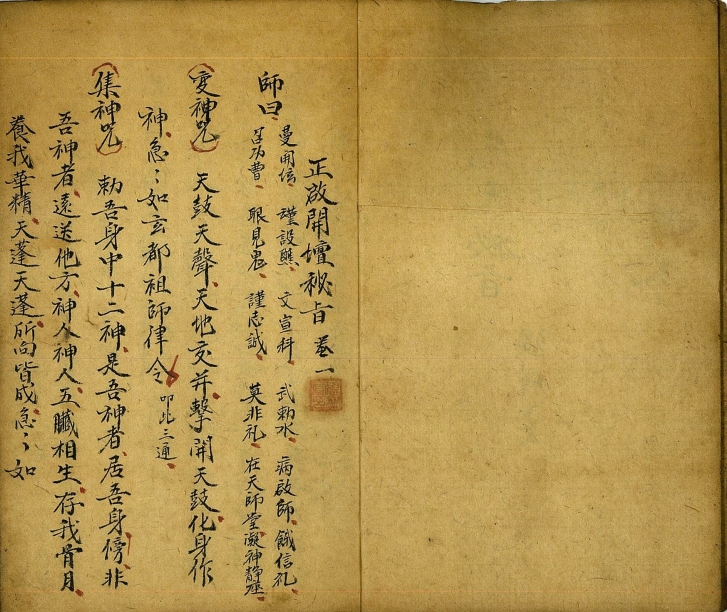 正啟開壇秘旨 卷一
師曰 曼開信 謹設醮 文宣科 武勅水 病啟師 餓信礼
召功曹 眼見鬼 謹志誠 莫非礼 在天師堂凝神靜座
變神咒 天鼓天聲 天地交并 擊開天鼓化身作
神 急〻如玄都祖師律令 叩比三通
集神咒 勅吾身中十二神 是吾神者 居吾身傍 非
吾神者 遠送他方 神人神人 五臟相生 存我骨月
養我華精 天蓬天蓬 所向皆成 急〻如